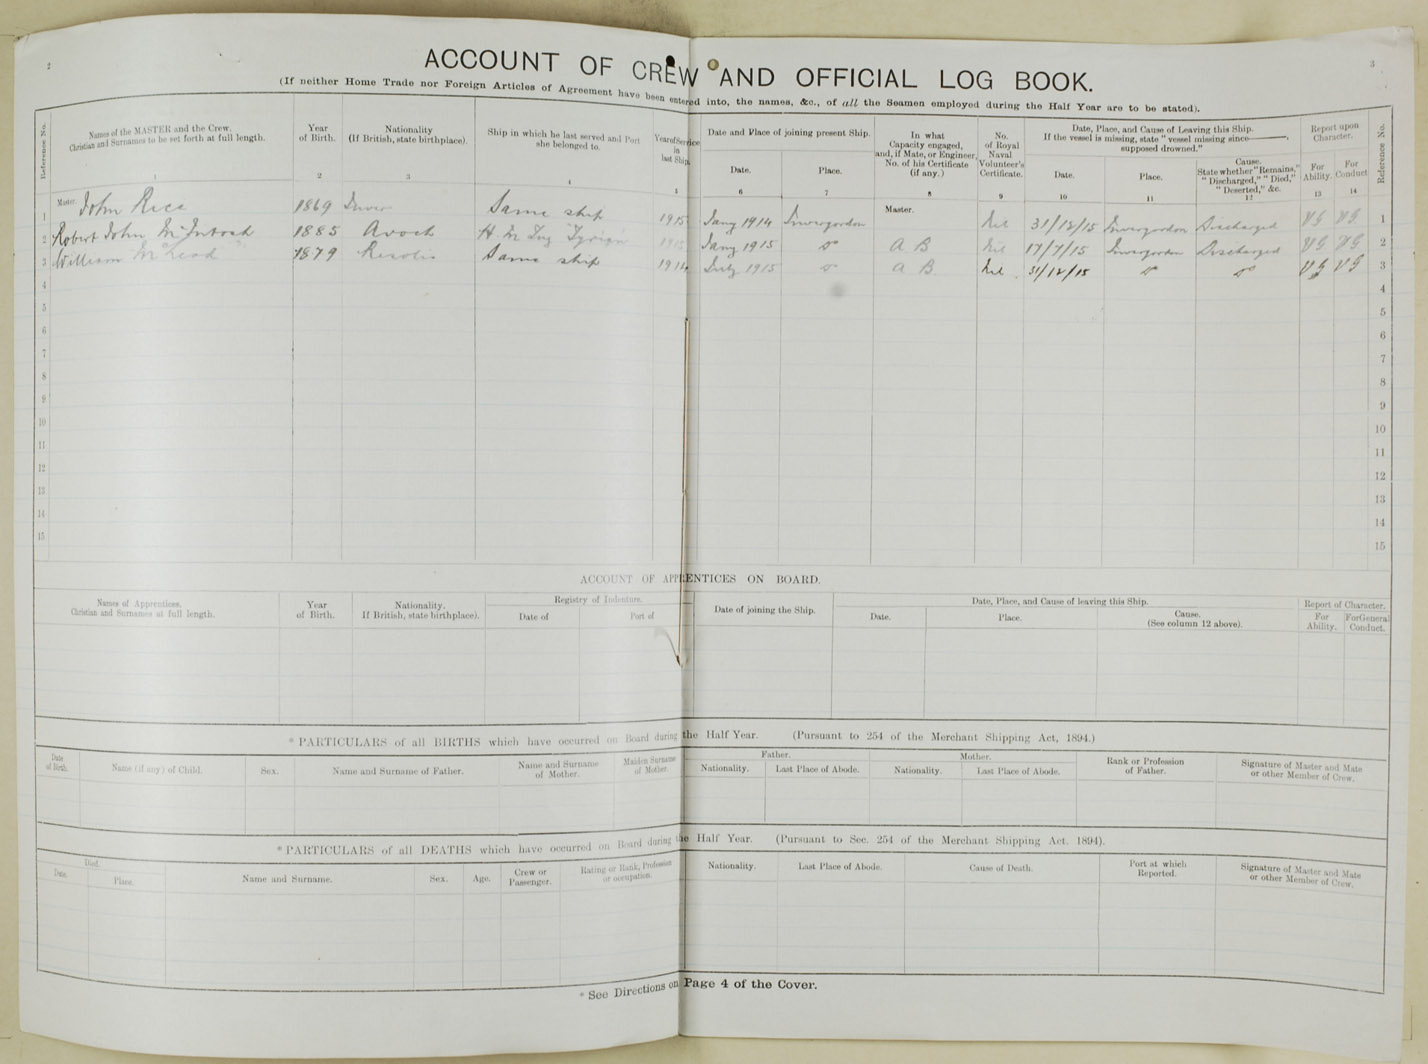 2
3
ACCOUNT OF CREW AND OFFICIAL LOG BOOK.
(If neither Home Trade nor Foreign Articles of Agreement have been entered into, the names, &c., of all the Seamen employed during the Half Year are to be stated).
Reference No.
Names of the MASTER and the Crew. Christian and Surnames to be set forth at full length.
Year of Birth.
Nationality (If British, state birthplace).
Ship in which he last served and Port she belonged to.
Year of Service in last Ship.
Date and Place of joining present Ship.
Date.
Place.
In what Capacity engaged, and, if Mate, or Engineer, No. of his Certificate (if any.)
No. of Royal Naval Volunteer's Certificate.
Date, Place, and Cause of Leaving this Ship.
If the vessel is missing, state "vessel missing since———, supposed drowned."
Date.
Place.
Cause. State whether "Remains," "Discharged," "Died," "Deserted," &c.
Report upon Character.
For Ability.
For Conduct
Reference No.
1 2 3 4 5 6 7 8 9 10 11 12 13 14
1 Master. John Rice 1869 Inver Same ship 1915 Jany 1914 Invergordon Master. Nil 31/12/15 Invergordon Discharged VG VG 1
2 Robert John McIntosh 1885 Avoch H.M Tug Tyrian 1915 Jany 1915 do A B Nil 17/7/15 Invergordon Discharged VG VG 2
3 William McLeod 1879 Resolis Same ship 1914 July 1915 do A B Nil 31/12/15 do do VG VG 3
4 4
5 5
6 6
7 7
8 8
9 9
10 10
11 11
12 12
13 13
14 14
15 15
ACCOUNT OF APPRENTICES ON BOARD.
Names of Apprentices. Christian and Surnames at full length.
Year of Birth.
Nationality. If British, state birthplace).
Registry of Indenture.
Date of
Port of
Date of joining the Ship.
Date, Place, and Cause of leaving this Ship.
Date.
Place.
Cause. (See column 12 above).
Report of Character.
For Ability.
For General Conduct.
* PARTICULARS of all BIRTHS which have occurred on Board during the Half Year. (Pursuant to 254 of the Merchant Shipping Act, 1894.)
Date of Birth.
Name (if any) of Child.
Sex.
Name and Surname of Father.
Name and Surname of Mother.
Maiden Surname of Mother.
Father.
Nationality.
Last Place of Abode.
Mother.
Nationality.
Last Place of Abode.
Rank or Profession of Father.
Signature of Master and Mate or other Member of Crew.
* PARTICULARS of all DEATHS which have occurred on Board during the Half Year. (Pursuant to Sec. 254 of the Merchant Shipping Act. 1894).
Died.
Date.
Place.
Name and Surname.
Sex.
Age.
Crew or Passenger.
Rating or Rank, Profession or occupation.
Nationality.
Last Place of Abode.
Cause of Death.
Port at which Reported.
Signature of Master and Mate or other Member of Crew.
* See Directions on Page 4 of the Cover.